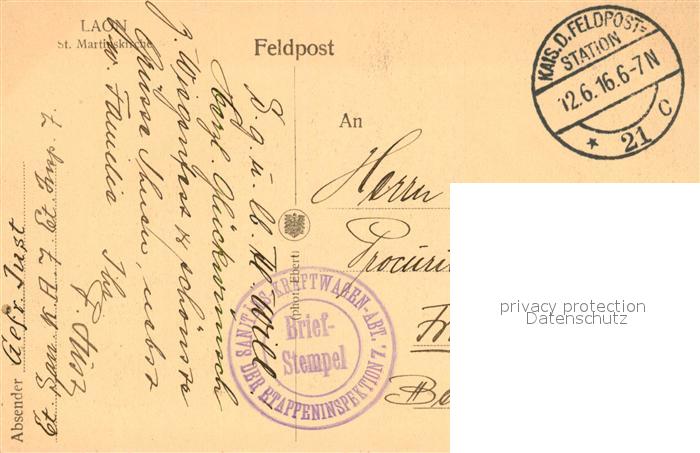 LAON
St. Martinskirche
Feldpost
An
KAIS. D. FELDPOST=
STATION
12.6.16.6-7N
* 21 c
Herrn
(phot. Ebert)
SANITÄTS-KRAFTWAGEN-ABT.
DER ETAPPENINSPEKTION 7.
Brief-
Stempel
Absender Gefr. Just
Et. San. K. A. 7. Et. Insp. 7.
herzl. Glückwunsch
z. Wiegenfest & schönste
Grüsse Ihnen, nebst
Familie Ihr
privacy protection
Datenschutz